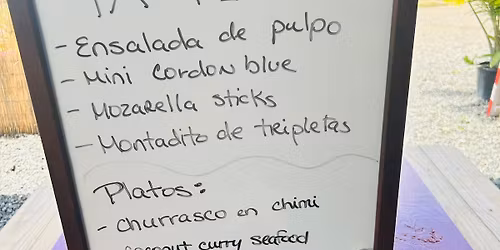 - Ensalada de pulpo
- Mini Cordon blue
- Mozarella sticks
- Montadito de tripletas
Platos:
- churrasco en chimi
coconut curry seafood